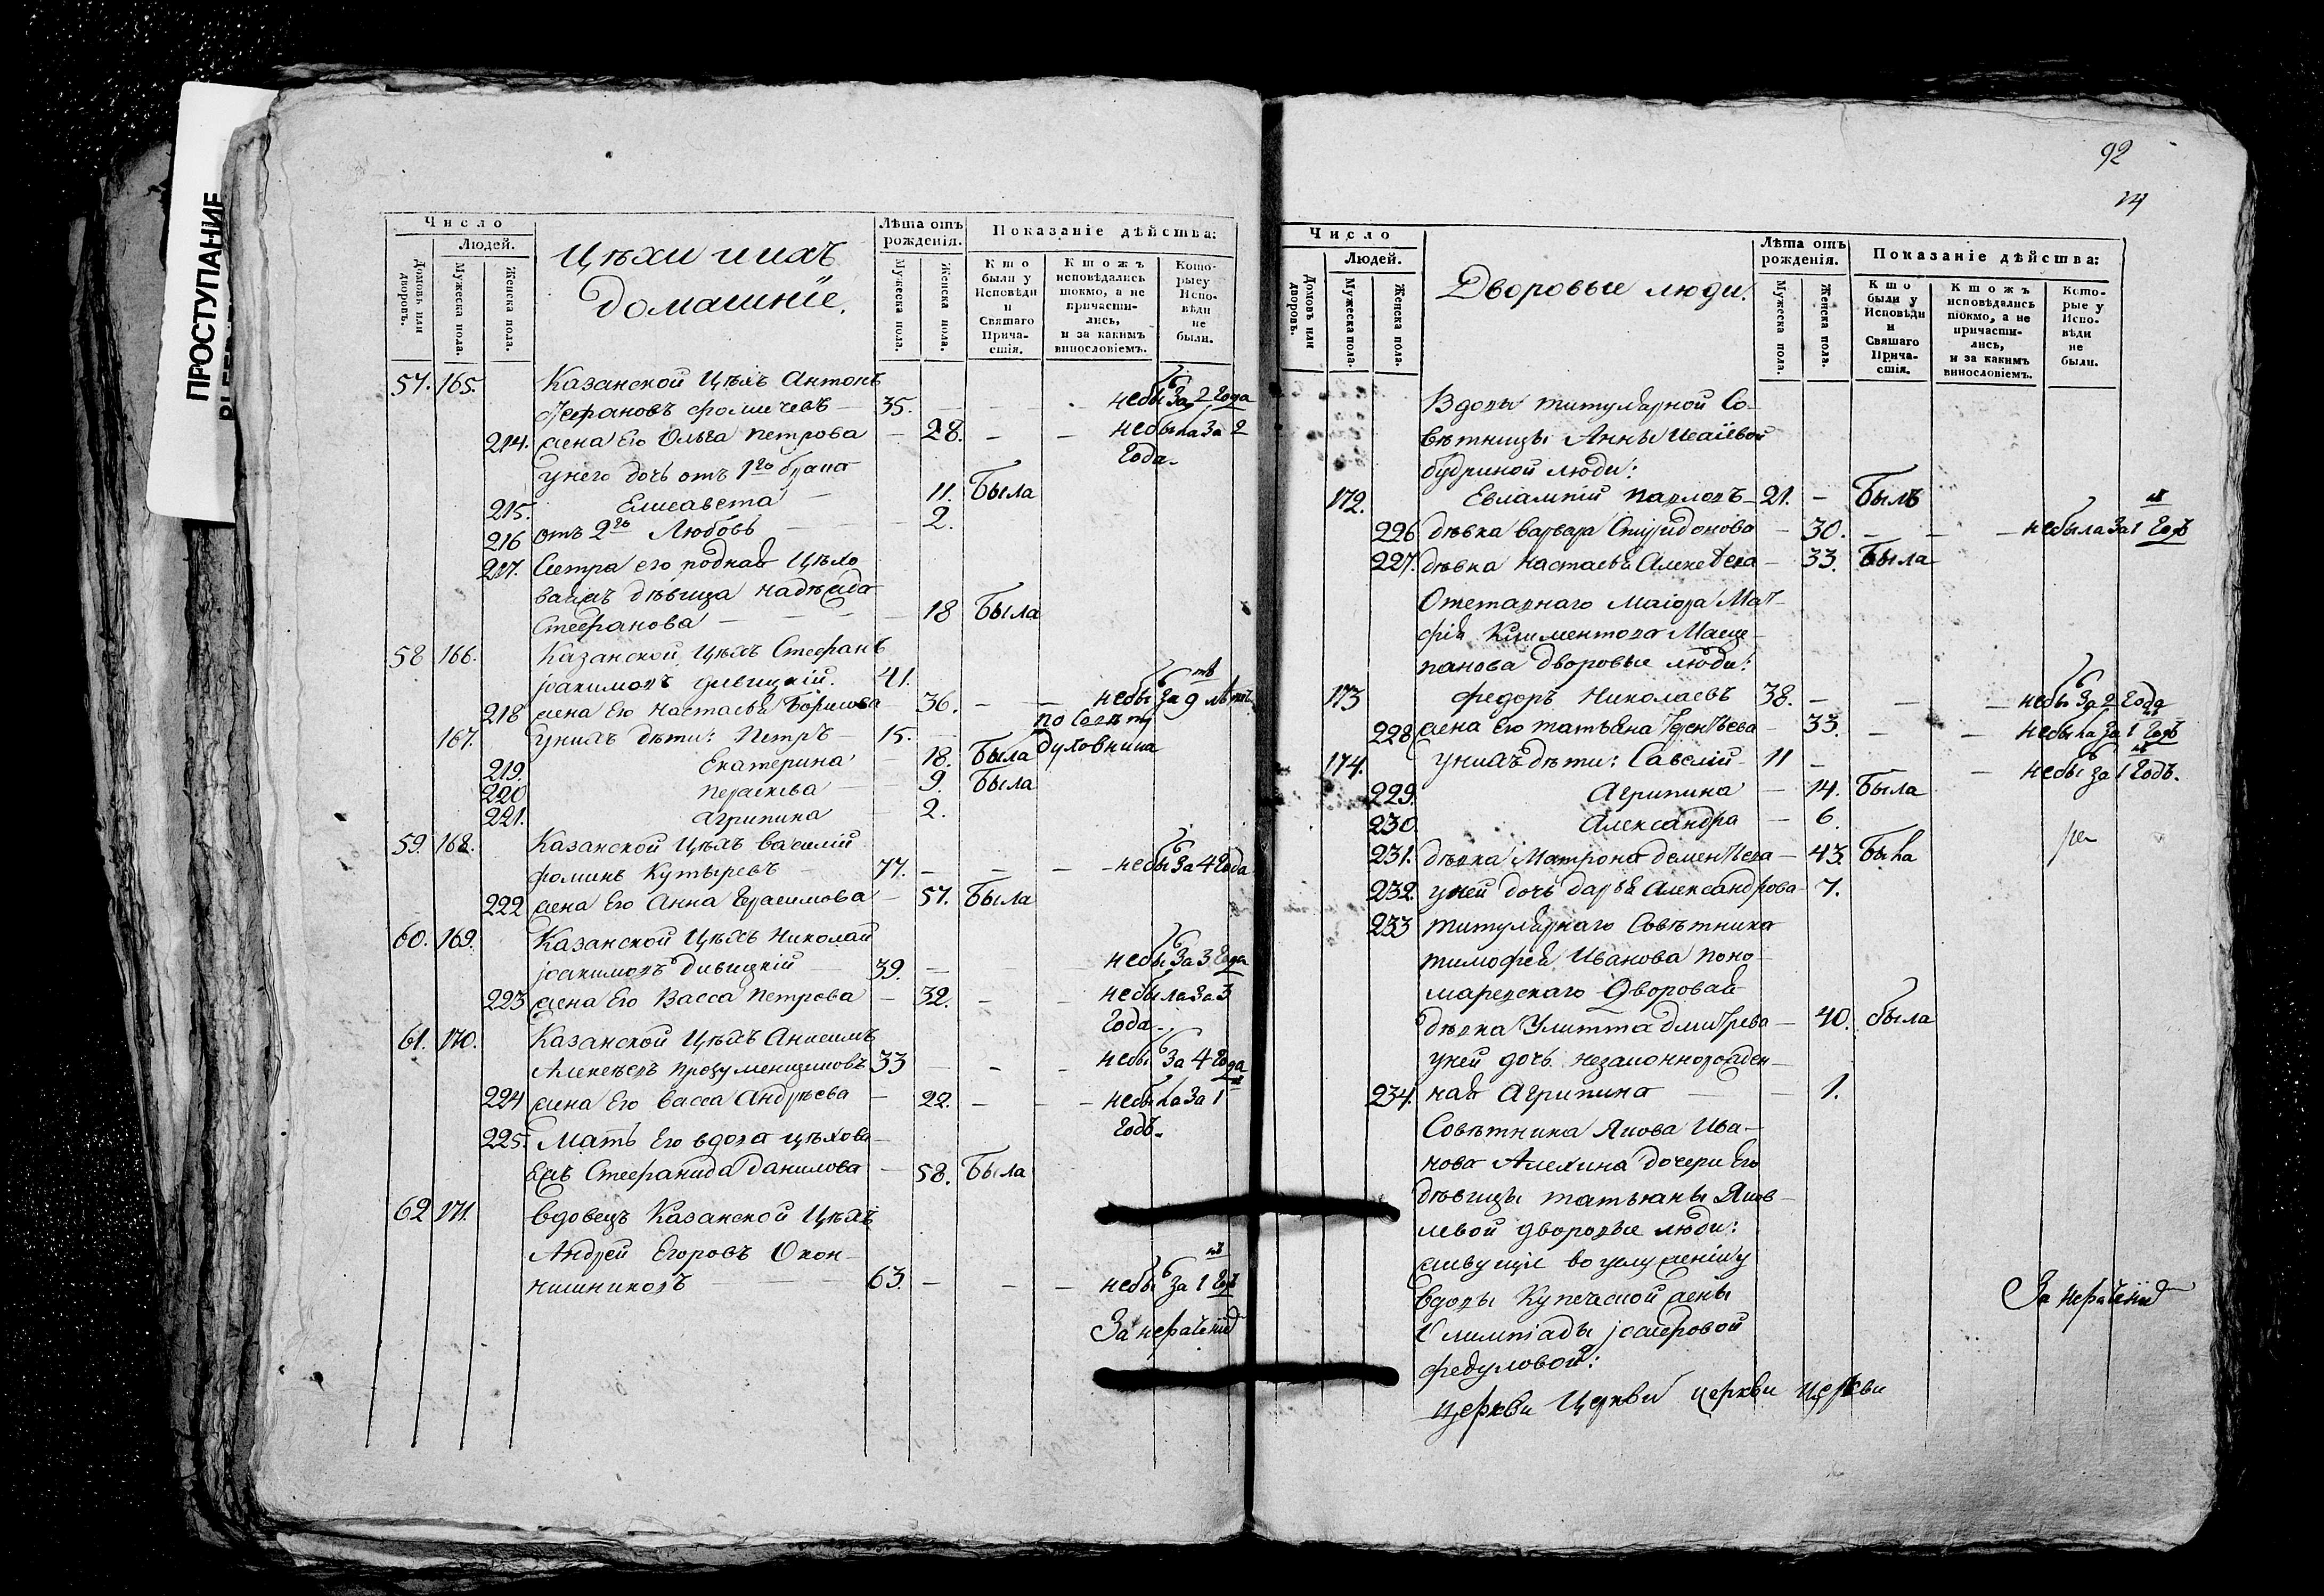 ПРОСТУПАНИЕ
Число
Людей.
Домовъ или дворовъ.
Мужеска пола.
Женска пола.
Цѣхи и ихъ
домашніе.
Лѣта отъ рожденія.
Мужеска пола.
Женска пола.
Показаніе дѣйства:
Кто были у Исповѣди и Святаго Причастія.
Ктожъ исповѣдались токмо, а не причастились, и за какимъ винословіемъ.
Которые у Исповѣди не были.
57. 165. Казанской Цѣхъ Антонъ
Стефановъ Фомичевъ 35. небы за 2 года
214. жена Его Ольга Петрова 28. небыла за 2
года
унего дочь отъ 1го брака
215. Елисавета 11. Была
216 отъ 2го Любовь 2.
217. Сестра его родная Цѣхо
вая дѣвица Надежда
Стефанова 18 Была
58 166. Казанской Цѣхъ Стефанъ
Іоакимовъ 41.
218 жена Его Настасья Борисова 36. небы за 9 лѣтъ
167. унихъ дѣти: Петръ 15. по совѣту
духовника
219. Екатерина 18. Была
220 Параскева 9. Была
221. Агрипина 2.
59. 168. Казанской Цѣхъ Василій
Фоминъ Кутыревъ 77. небы за 4 года
222 жена Его Анна Герасимова 57. Была
60. 169. Казанской Цѣхъ Николай
Іоакимовъ Дивицкій 39. небы за 3 года
223 жена Его Васса Петрова 32. небыла за 3
года
61. 170. Казанской Цѣхъ Анисимъ
Алексѣевъ 33 небы за 4 года
224 жена Его Васса Андреева 22. небыла за 1
годъ.
225. Мать Его вдова цѣхова
Стефанида Данилова 58. Была
62 171. Вдовецъ Казанской Цѣхъ
Андрей Егоровъ Окон
нишниковъ 63. небы за 1 годъ
За нераченіе
92
14
Число
Людей.
Домовъ или дворовъ.
Мужеска пола.
Женска пола.
Дворовые люди.
Лѣта отъ рожденія.
Мужеска пола.
Женска пола.
Показаніе дѣйства:
Кто были у Исповѣди и Святаго Причастія.
Ктожъ исповѣдались токмо, а не причастились, и за какимъ винословіемъ.
Которые у Исповѣди не были.
Вдовы титулярной Со-
вѣтницы Анны Исаіевой
Будриной люди:
172. Евлампій Павловъ 21. Былъ
226 дѣвка Варвара Спиридонова 30. небыла за 1 годъ
227. дѣвка Настасья Алексѣева 33. Была
Отставнаго Маіора Мат-
фія Климентова Маще-
панова дворовые люди:
173 Федоръ Николаевъ 38. небы за 2 года
228 жена Его Татьяна 33. небыла за 1 годъ
174. унихъ дѣти: Савелій 11 небы за 1 годъ.
229. Агрипина 14. Была
230. Александра 6.
231. дѣвка Матрона Дементьева 43. Была
232. уней дочь Дарья Александрова 7.
233 титулярнаго Совѣтника
Тимофея Иванова Поно-
маревскаго дворовая
дѣвка Улитта Дмитрева 40. была
уней дочь незаконнорожден-
234. ная Агрипина 1.
Совѣтника Якова Ива-
нова Алехина дочери Его
дѣвицы Татьяны Яков-
левой дворовые люди:
живущіе во услуженіи у
вдовы Купеческой жены
Олимпіады Іосифовой
Федуловой:
За нерачение
церкви Церкви церкви церкви